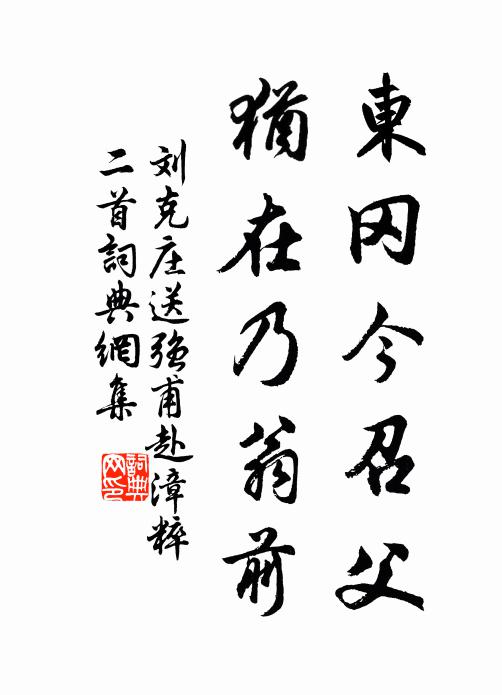 東冈今召父
猶在乃翁前
刘克庄送强甫赴漳粹
二首詞典網集
詞典
网印